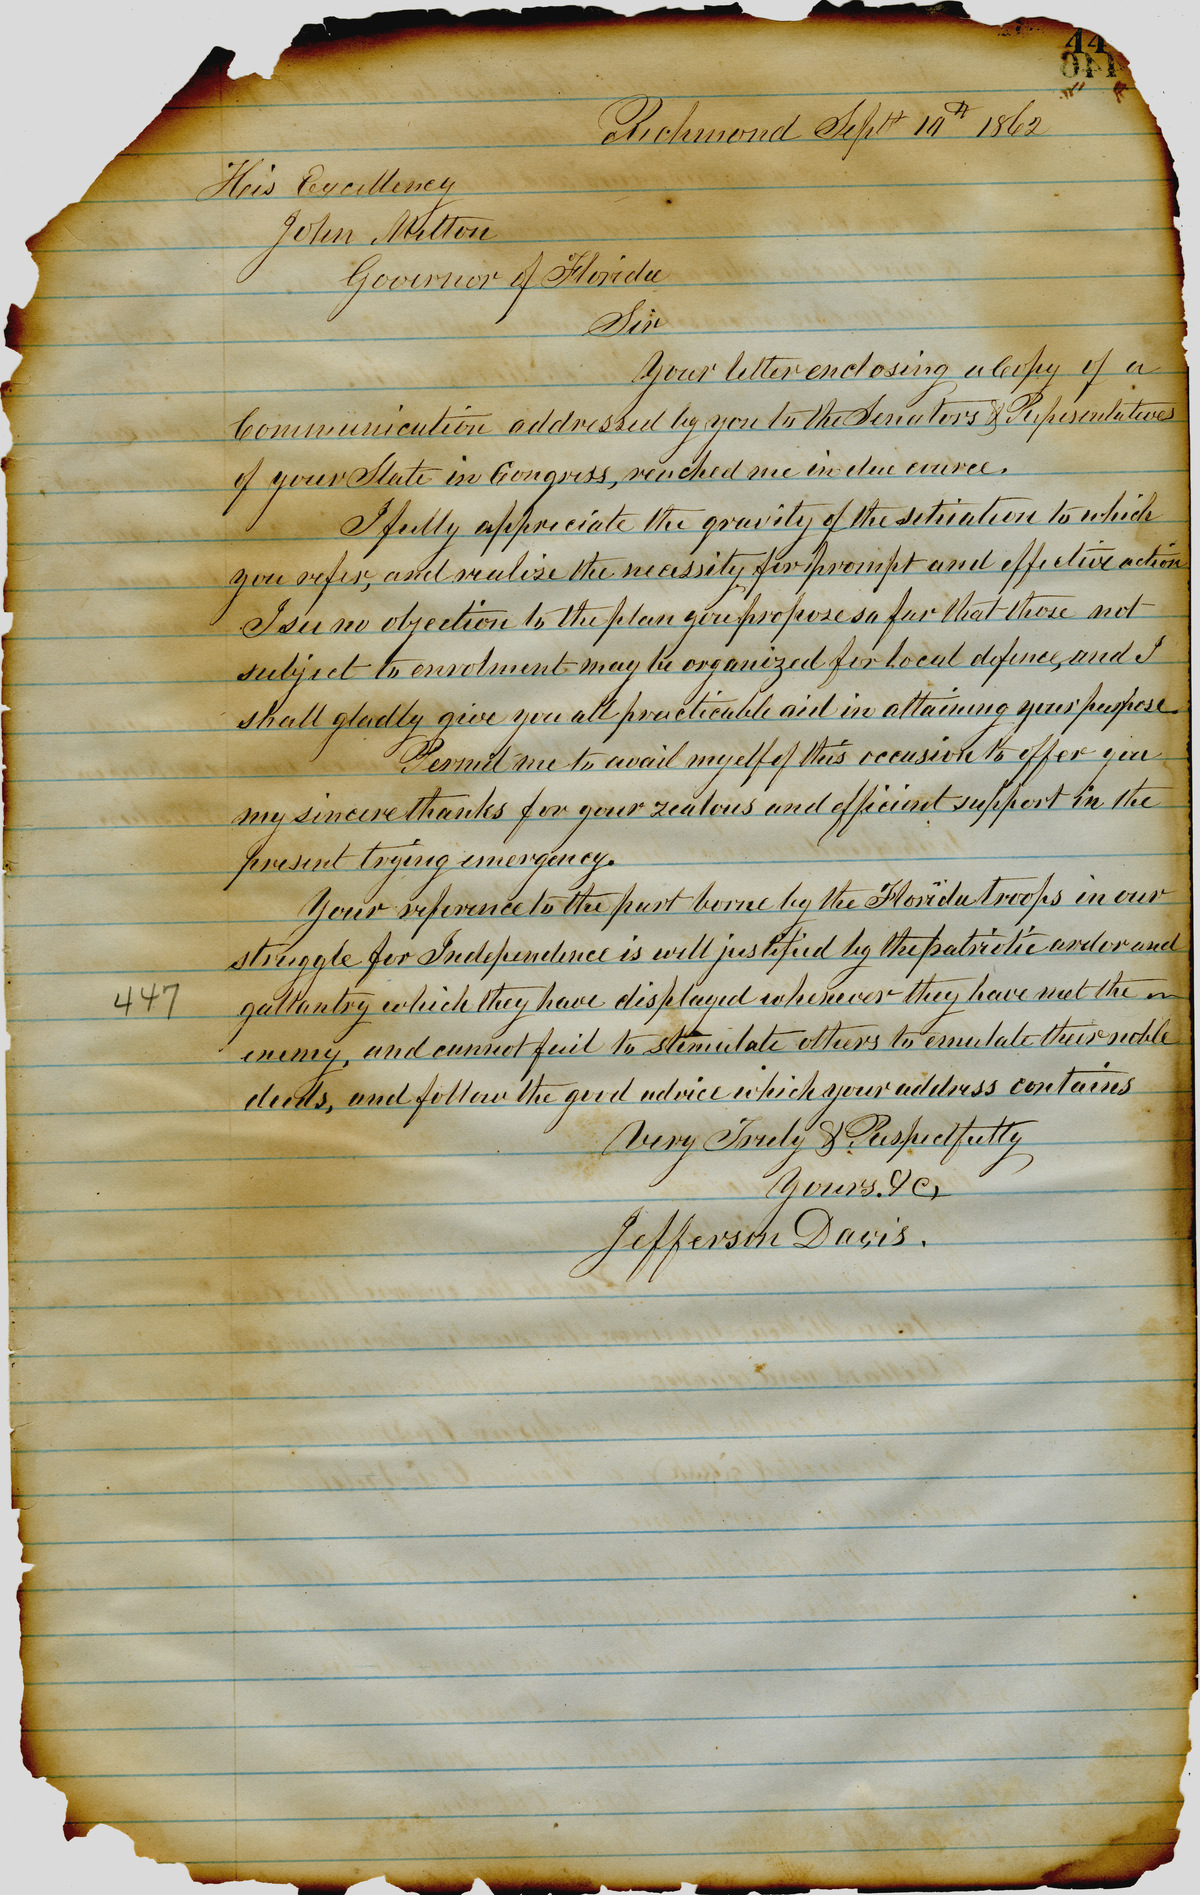 44
Richmond Sept 10th 1862
His Excellency
John Milton
Governor of Florida
Sir
Your letter enclosing a Copy of a
Communication addressed by you to the Senators & Representatives
of your State in Congress, reached me in due cource.
I fully appreciate the gravity of the situation to which
you refer, and realise the necessity for prompt and effective action
I see no objection to the plan you propose so far that those not
subject to enrolment may be organized for local defence, and I
shall gladly give you all practicable aid in attaining your purpose.
Permit me to avail myself of this occasion to offer you
my sincere thanks for your zealous and efficient support in the
present trying emergency.
Your reference to the part borne by the Florida troops in our
struggle for Independence is well justified by the patriotic ardor and
gallantry which they have displayed whenever they have met the
447
enemy, and cannot fail to stimulate others to emulate their noble
deeds, and follow the good advice which your address contains
Very Truly & Respectfully
Yours. &c,
Jefferson Davis.